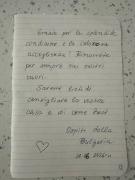 Grazie per la splendida
condizione e la calorosa
accoglienza! Rimarrete
per sempre nei nostri
cuori.
Saremo lieti di
consigliare la vostra
casa e di come
Ospiti dalla
Bulgaria